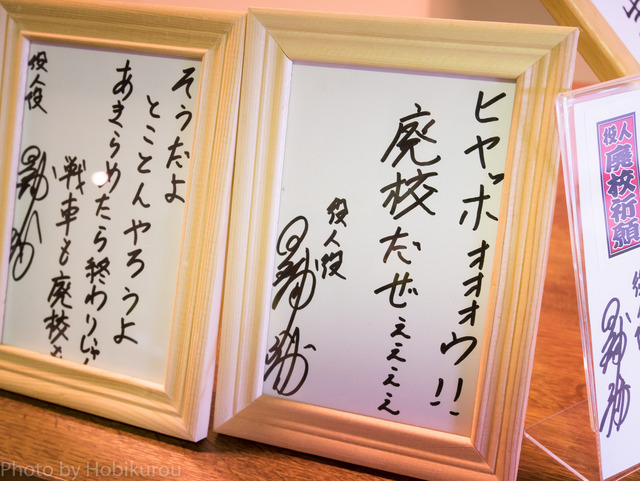 そうだよ
とことんやろうよ
あきらめたら終わりじゃ
戦車も廃校
役人役
ヒャッホォォォウ!!
廃校だぜぇぇぇぇ
役人役
役人
廃校祈願
役人役
Photo by Hobikurou